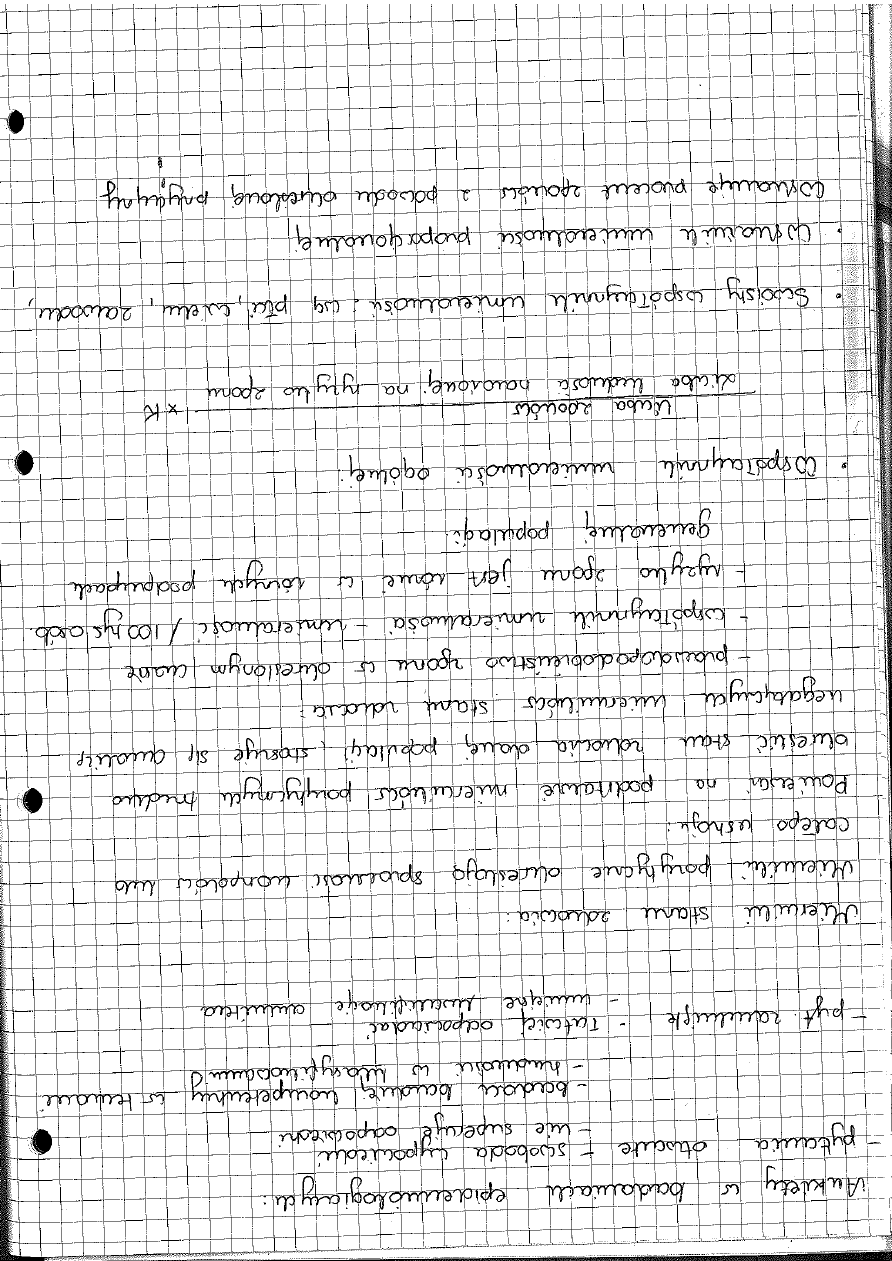 Ankiety w badaniach epidemiologicznych:
- pytania otwarte - swoboda wypowiedzi
- nie sugeruje odpowiedzi
- bardziej kompetentny w temacie
- trudności w klasyfikowaniu
- pyt. zamknięte - łatwiej odpowiadać
- umiejne kwalifikuje ankietera
Mierniki stanu zdrowia:
Mierniki pozytywne określają sprawność narządów lub
całego ustroju.
Ponieważ na podstawie mierników pozytywnych trudno
określić stan zdrowia danej populacji, stosuje się
negatywnych mierników stanu zdrowia:
- prawdopodobieństwo zgonu w określonym czasie
- współczynnik umieralności - umieralność / 100 tys osób.
- ryzyko zgonu jest różne w różnych podgrupach
generalnej populacji.
• Współczynnik umieralności ogólnej:
liczba zgonów
x K
liczba ludności narażonej na ryzyko zgonu
• Swoisty współczynnik umieralności: wg płci, wieku, zawodu,
• Wskaźnik umieralności proporcjonalnej
Wskazuje procent zgonów z powodu określonej przyczyny